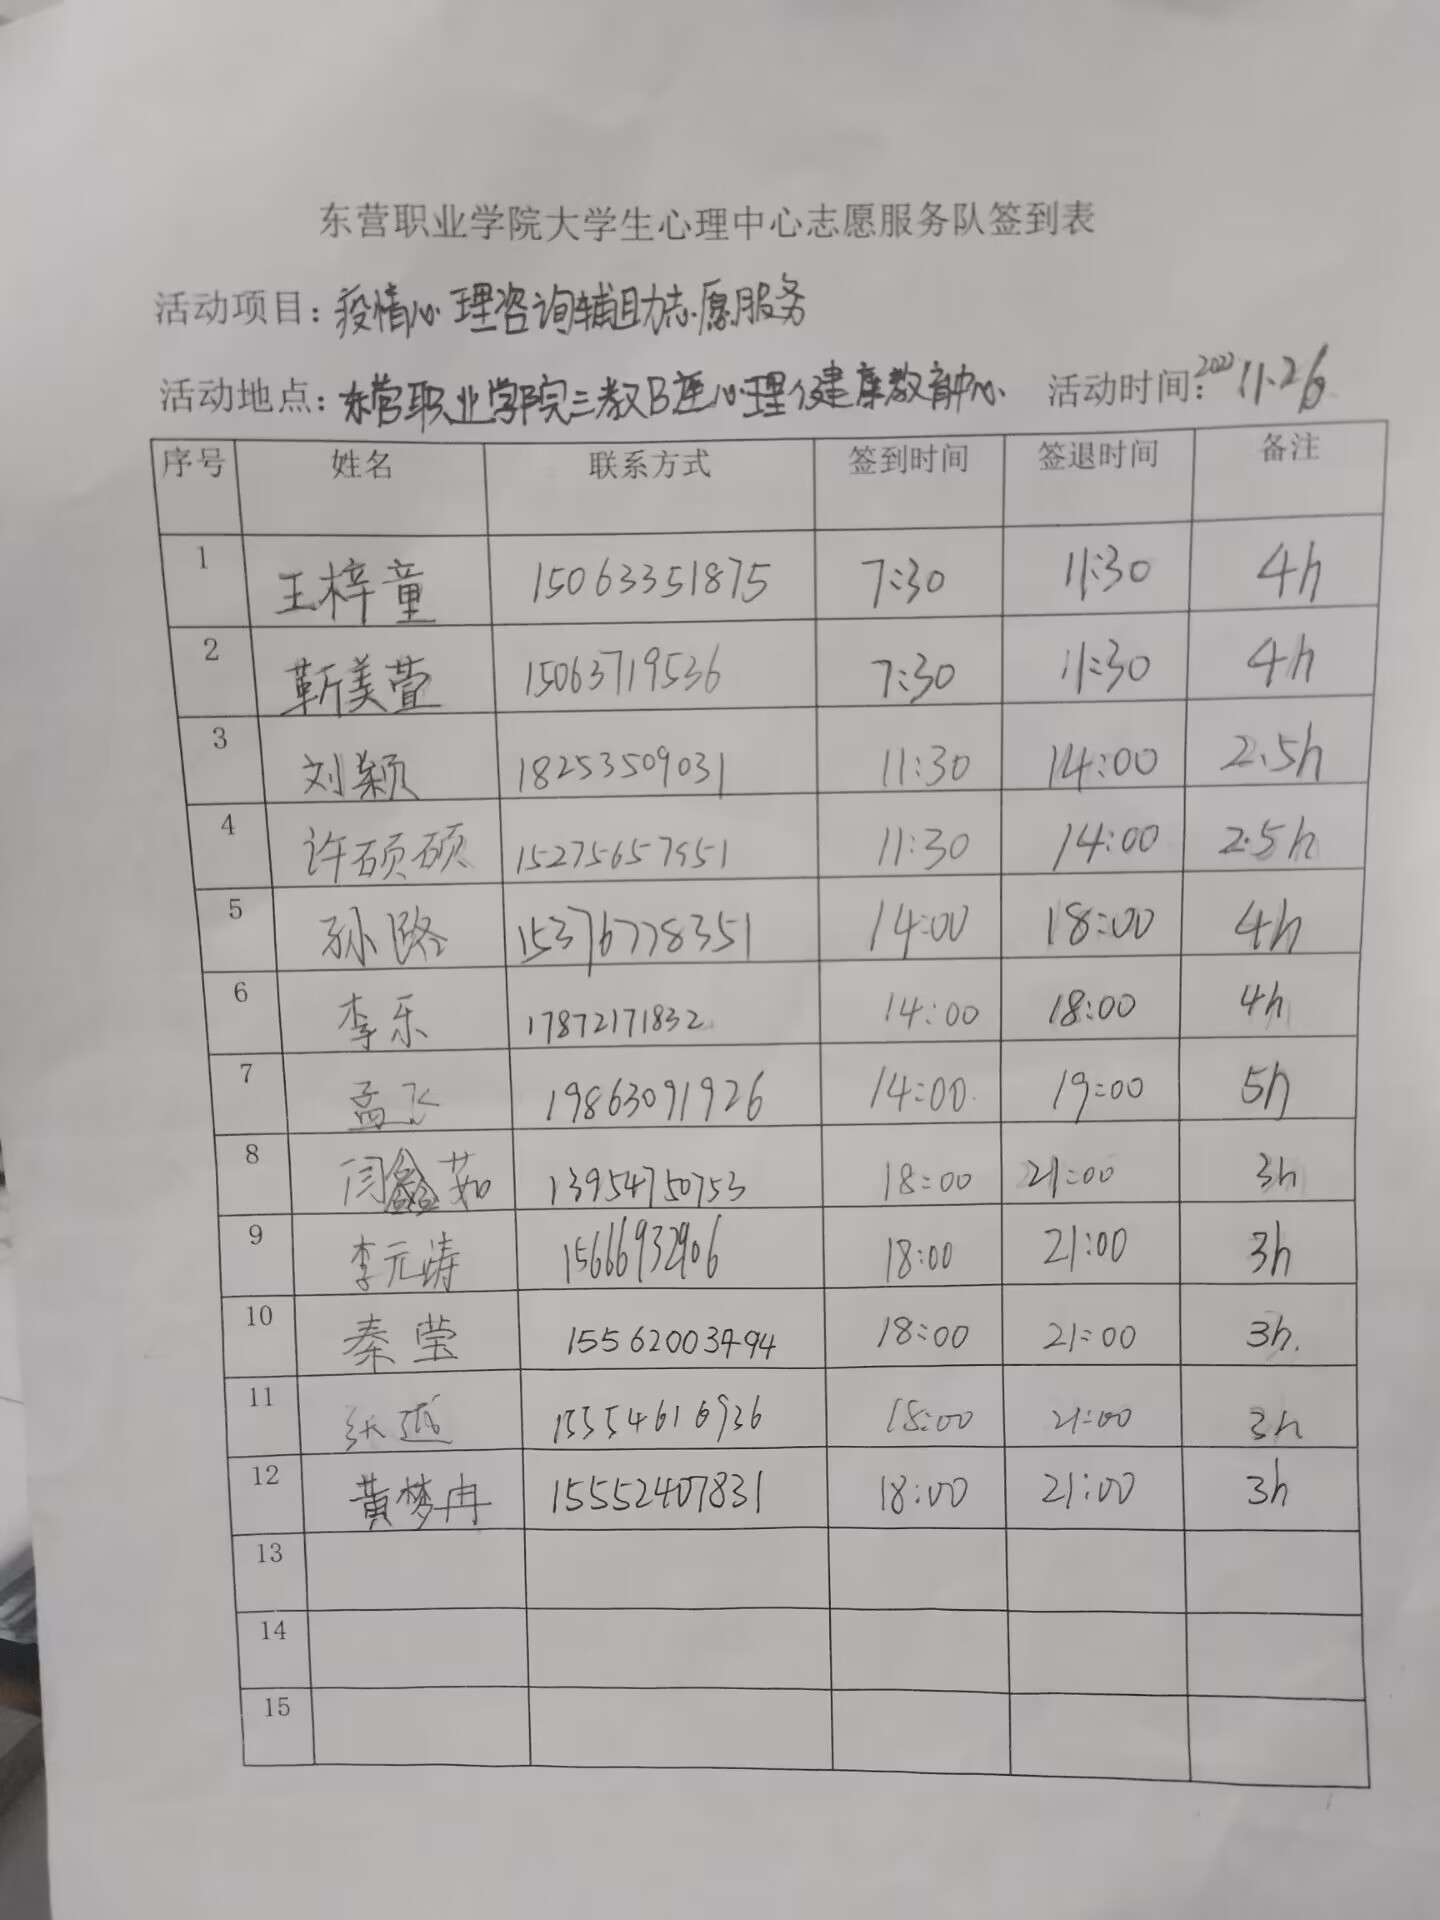 东营职业学院大学生心理中心志愿服务队签到表
活动项目：疫情心理咨询辅助志愿服务
活动地点：东营职业学院三教B座心理健康教育中心 活动时间：2022 11.26
序号 姓名 联系方式 签到时间 签退时间 备注
1 王梓童 15063351875 7:30 11:30 4h
2 靳美萱 15063719536 7:30 11:30 4h
3 刘颖 18253509031 11:30 14:00 2.5h
4 许硕硕 11:30 14:00 2.5h
5 孙路 15376778351 14:00 18:00 4h
6 李乐 17872171832 14:00 18:00 4h
7 孟飞 19863091926 14:00 19:00 5h
8 闫鑫茹 13954750753 18:00 21:00 3h
9 李元涛 15666932906 18:00 21:00 3h
10 秦莹 15562003494 18:00 21:00 3h.
11 张越 15554616936 18:00 21:00 3h
12 黄梦冉 15552407831 18:00 21:00 3h
13
14
15